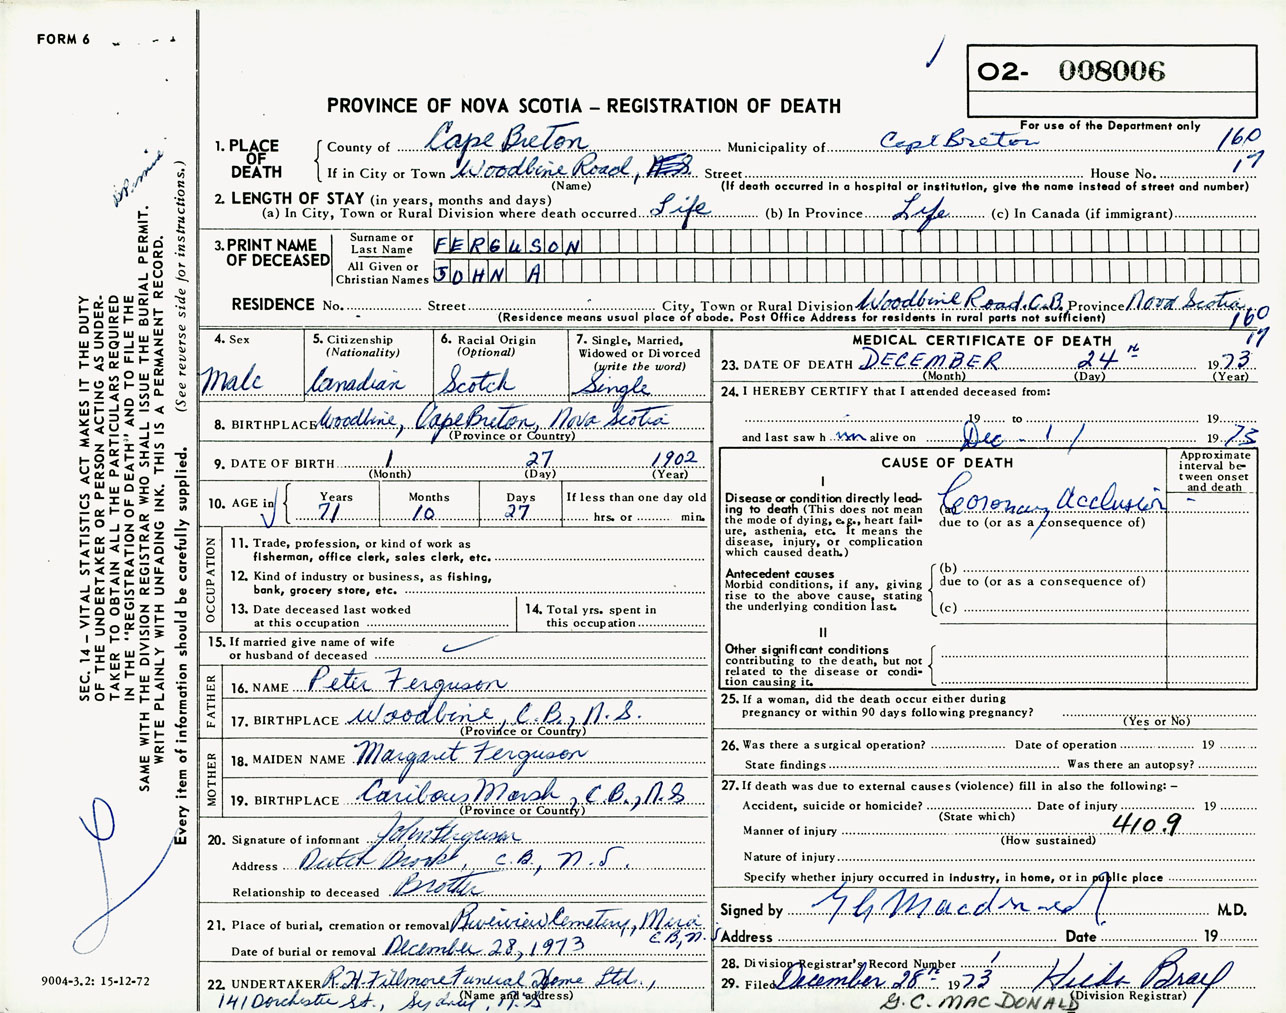 FORM 6
O2- 008006
PROVINCE OF NOVA SCOTIA – REGISTRATION OF DEATH
For use of the Department only
1. PLACE OF DEATH
County of Cape Breton Municipality of Cape Breton 160
If in City or Town Woodbine Road, Street House No. 17
(Name) (If death occurred in a hospital or institution, give the name instead of street and number)
2. LENGTH OF STAY (in years, months and days)
(a) In City, Town or Rural Division where death occurred Life (b) In Province Life (c) In Canada (if immigrant)
3. PRINT NAME OF DECEASED
Surname or Last Name FERGUSON
All Given or Christian Names JOHN A
RESIDENCE No. Street City, Town or Rural Division Woodbine Road, C.B. Province Nova Scotia
(Residence means usual place of abode. Post Office Address for residents in rural parts not sufficient) 160
17
4. Sex
Male
5. Citizenship
(Nationality)
Canadian
6. Racial Origin
(Optional)
Scotch
7. Single, Married,
Widowed or Divorced
(write the word)
Single
8. BIRTHPLACE Woodbine, Cape Breton, Nova Scotia
(Province or Country)
9. DATE OF BIRTH 1 27 1902
(Month) (Day) (Year)
10. AGE in
Years Months Days If less than one day old
71 10 27 hrs. or min.
OCCUPATION
11. Trade, profession, or kind of work as
fisherman, office clerk, sales clerk, etc.
12. Kind of industry or business, as fishing,
bank, grocery store, etc.
13. Date deceased last worked
at this occupation
14. Total yrs. spent in
this occupation
15. If married give name of wife
or husband of deceased
FATHER
16. NAME Peter Ferguson
17. BIRTHPLACE Woodbine, C.B., N.S.
(Province or Country)
MOTHER
18. MAIDEN NAME Margaret Ferguson
19. BIRTHPLACE Caribou Marsh, C.B., N.S
(Province or Country)
20. Signature of informant John Ferguson
Address Dutch Brook, C.B., N.S.
Relationship to deceased Brother
21. Place of burial, cremation or removal Riverview Cemetery, Mira
C.B., N.S
Date of burial or removal December 28, 1973
22. UNDERTAKER R.H. Fillmore Funeral Home Ltd.,
(Name and address)
141 Dorchester St., Sydney, N.S
MEDICAL CERTIFICATE OF DEATH
23. DATE OF DEATH DECEMBER 24th 1973
(Month) (Day) (Year)
24. I HEREBY CERTIFY that I attended deceased from:
19 to 19
and last saw h im alive on Dec - 11 1973
CAUSE OF DEATH
Approximate interval between onset and death
I
Disease or condition directly leading to death (This does not mean the mode of dying, e.g., heart failure, asthenia, etc. It means the disease, injury, or complication which caused death.)
(a) Coronary Occlusion -
due to (or as a consequence of)
Antecedent causes
Morbid conditions, if any, giving rise to the above cause, stating the underlying condition last.
(b)
due to (or as a consequence of)
(c)
II
Other significant conditions
contributing to the death, but not related to the disease or condition causing it.
25. If a woman, did the death occur either during
pregnancy or within 90 days following pregnancy?
(Yes or No)
26. Was there a surgical operation? Date of operation 19
State findings Was there an autopsy?
27. If death was due to external causes (violence) fill in also the following: –
Accident, suicide or homicide? Date of injury 19
(State which)
410.9
Manner of injury
(How sustained)
Nature of injury
Specify whether injury occurred in industry, in home, or in public place
Signed by G C Macdonald M.D.
Address Date 19
28. Division Registrar's Record Number 1
29. Filed December 28th 1973 Hilda Bray
(Division Registrar)
G.C. MACDONALD
SEC. 14 – VITAL STATISTICS ACT MAKES IT THE DUTY
OF THE UNDERTAKER OR PERSON ACTING AS UNDER-
TAKER TO OBTAIN ALL THE PARTICULARS REQUIRED
IN THE "REGISTRATION OF DEATH" AND TO FILE THE
SAME WITH THE DIVISION REGISTRAR WHO SHALL ISSUE THE BURIAL PERMIT.
WRITE PLAINLY WITH UNFADING INK. THIS IS A PERMANENT RECORD.
Every item of information should be carefully supplied. (See reverse side for instructions.)
9004-3.2: 15-12-72